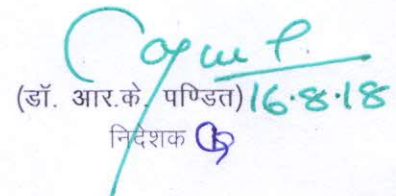 (डॉ. आर.के. पण्डित) 16.8.18
निदेशक